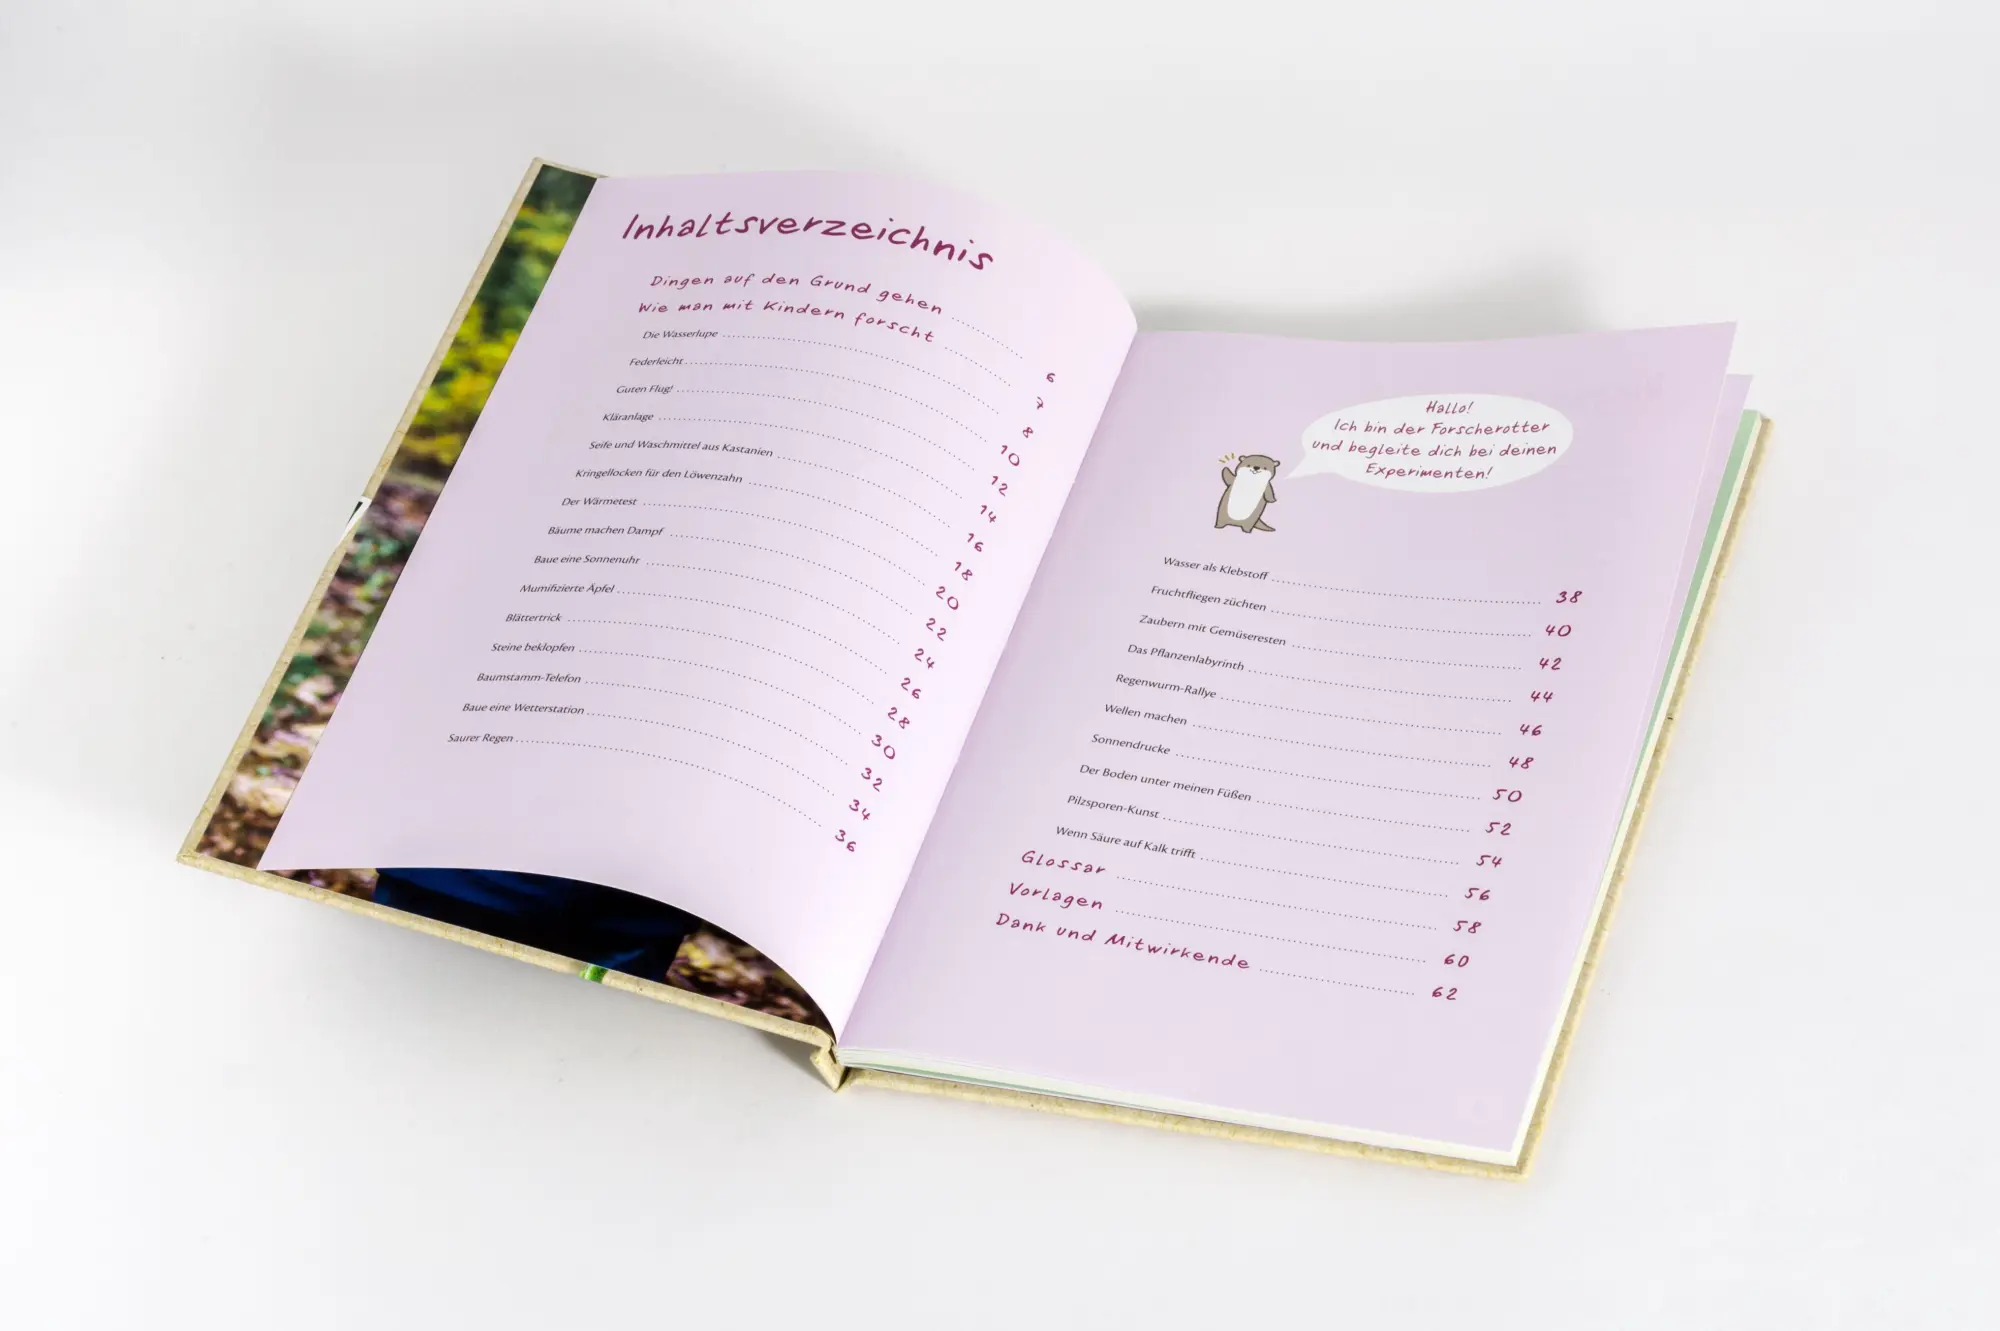 Inhaltsverzeichnis
Dingen auf den Grund gehen ............ 6
Wie man mit Kindern forscht ............ 7
Die Wasserlupe ............ 8
Federleicht ............ 10
Guten Flug! ............ 12
Kläranlage ............ 14
Seife und Waschmittel aus Kastanien ............ 16
Kringellocken für den Löwenzahn ............ 18
Der Wärmetest ............ 20
Bäume machen Dampf ............ 22
Baue eine Sonnenuhr ............ 24
Mumifizierte Äpfel ............ 26
Blättertrick ............ 28
Steine beklopfen ............ 30
Baumstamm-Telefon ............ 32
Baue eine Wetterstation ............ 34
Saurer Regen ............ 36
Hallo!
Ich bin der Forscherotter
und begleite dich bei deinen
Experimenten!
Wasser als Klebstoff ............ 38
Fruchtfliegen züchten ............ 40
Zaubern mit Gemüseresten ............ 42
Das Pflanzenlabyrinth ............ 44
Regenwurm-Rallye ............ 46
Wellen machen ............ 48
Sonnendrucke ............ 50
Der Boden unter meinen Füßen ............ 52
Pilzsporen-Kunst ............ 54
Wenn Säure auf Kalk trifft ............ 56
Glossar ............ 58
Vorlagen ............ 60
Dank und Mitwirkende ............ 62